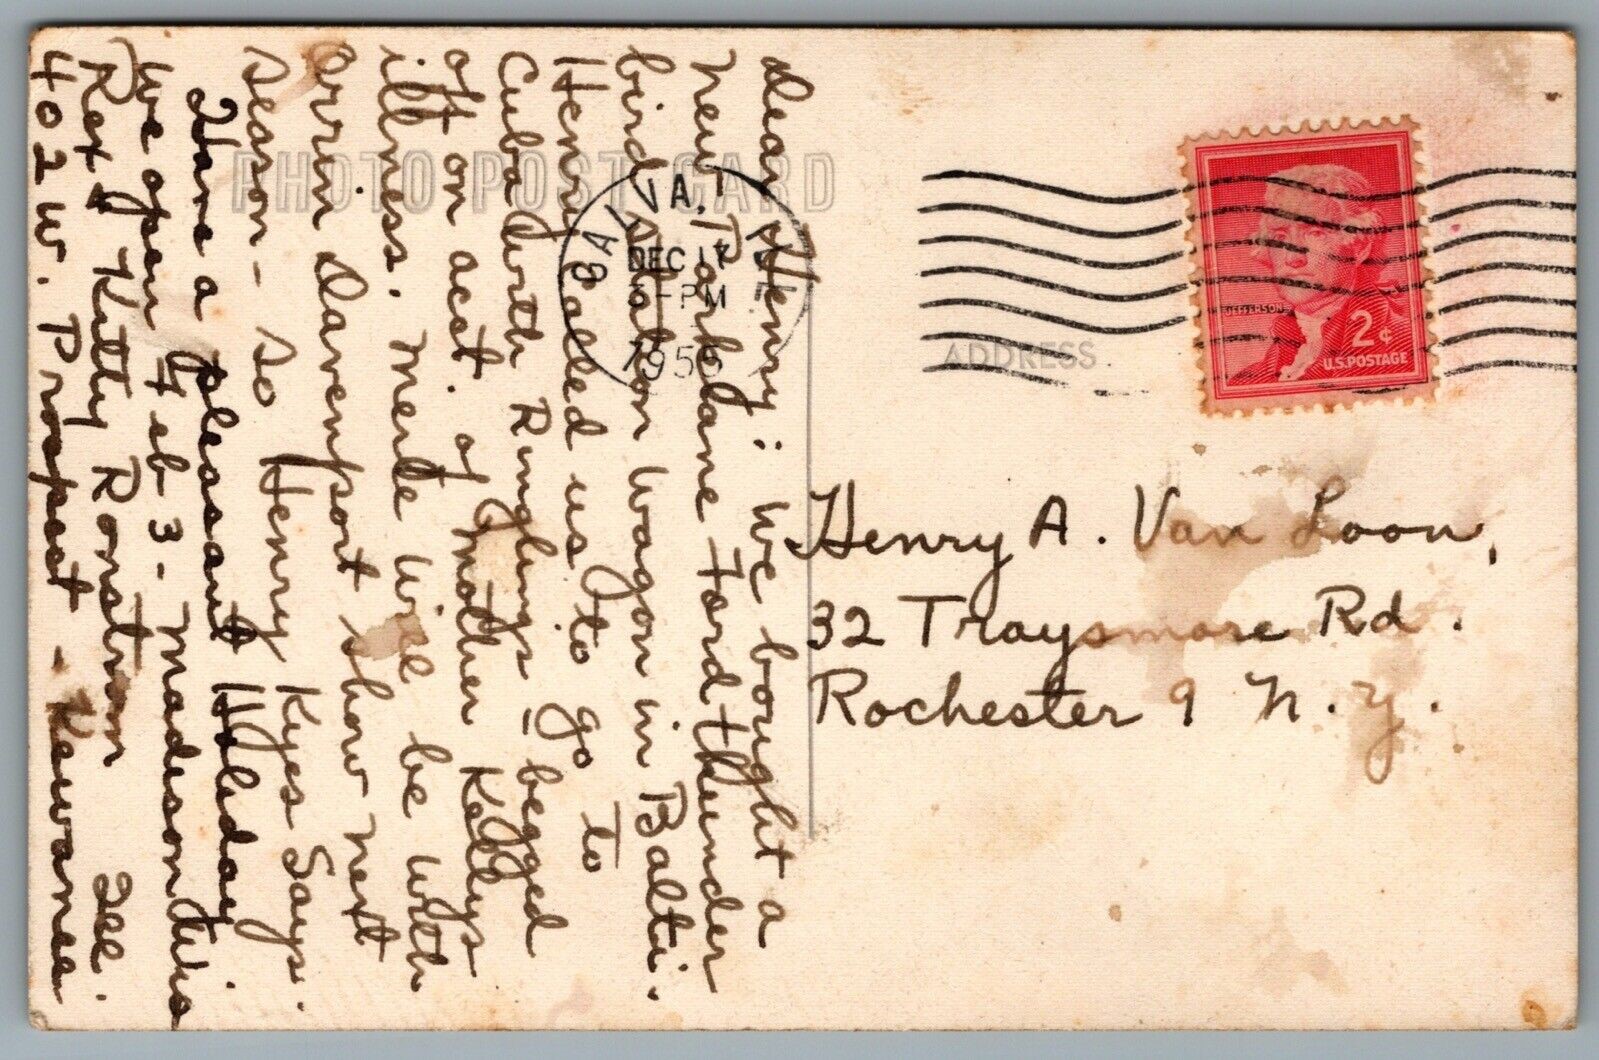 Dear Henry: We bought a
New Parklane Ford thunder
bird station wagon in Balti.
Henry called us to go to
Cuba with Ringlings - begged
off on acct. of Mother Kellys
illness. Merle will be with
Orrin Davenport show next
season - so Henry Kyes says.
Have a pleasant Holiday
We open Feb 3 - Madeson Wis
Rex & Kitty Ronstrom
402 W. Prospect - Kewanee Ill.
PHOTO POST CARD
VA.
DEC 17
3-PM
1955
ADDRESS
JEFFERSON
2¢
U.S. POSTAGE
Henry A. Van Loon,
32 Traysmore Rd.
Rochester 9 N. Y.